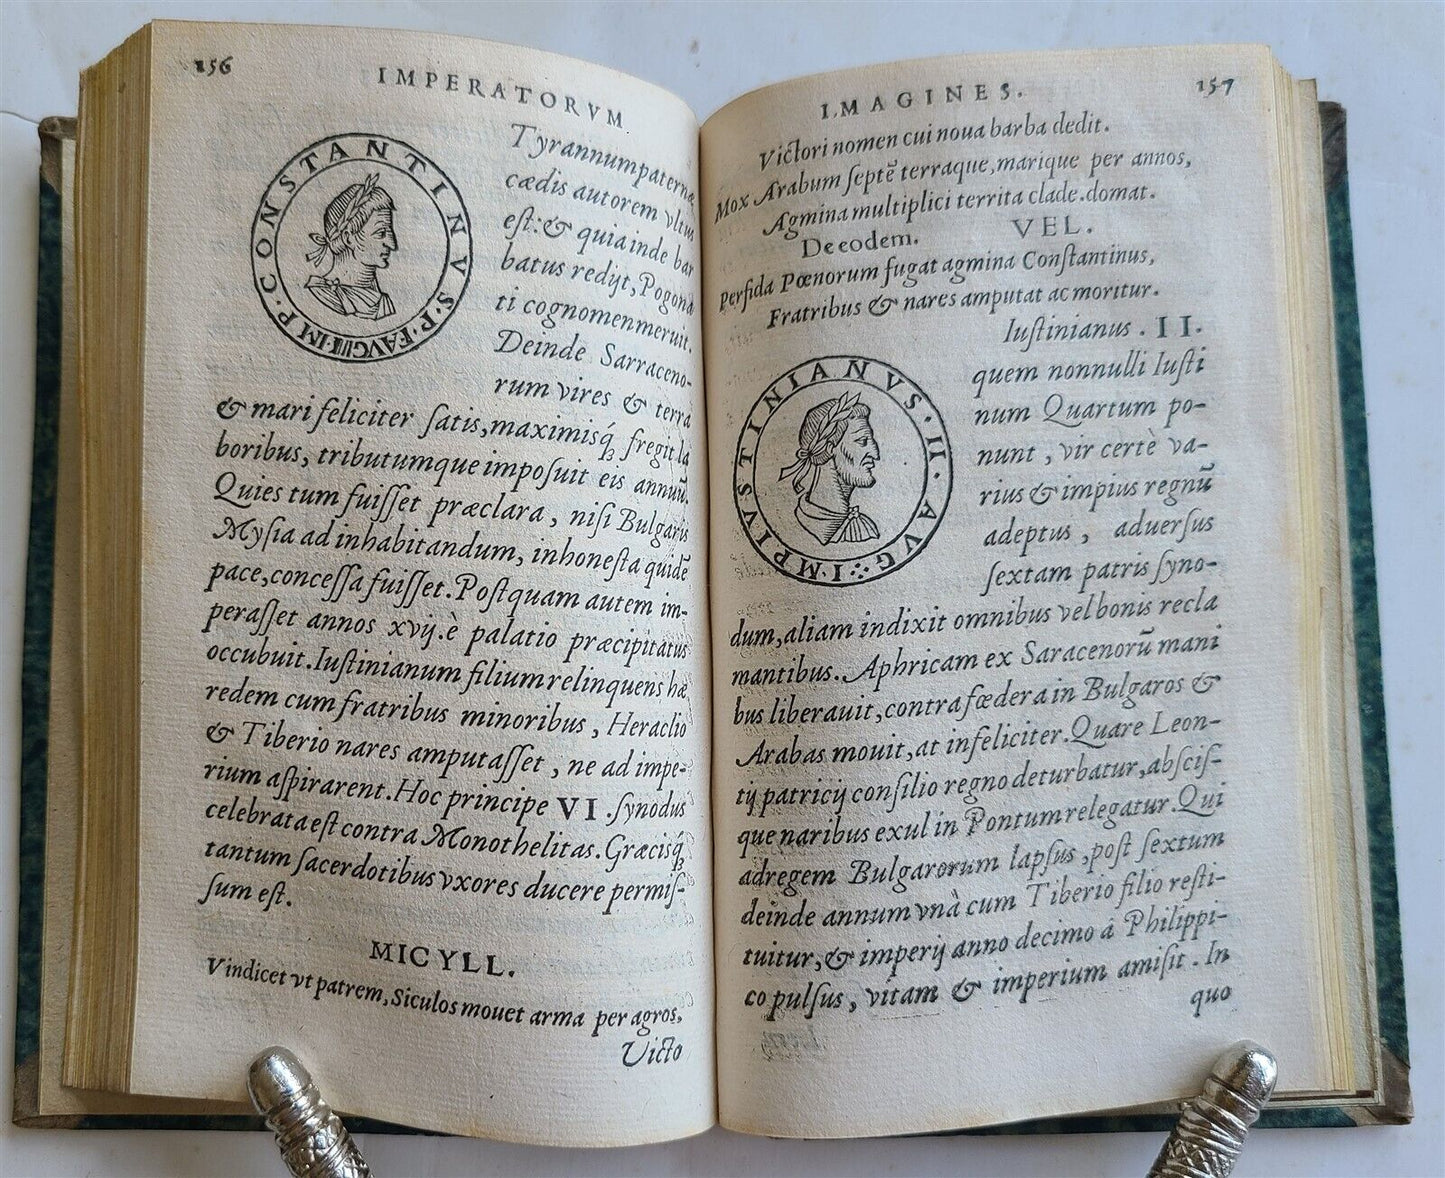 156
IMPERATORVM.
CONSTANTINVS·P·F·AVG·III·IMP·
Tyrannum paternæ
cædis autorem vltus
est: & quia inde bar
batus redijt, Pogona
ti cognomen meruit.
Deinde Sarraceno-
rum vires & terra
& mari feliciter satis, maximisq́ꝫ fregit la
boribus, tributumque imposuit eis annuū.
Quies tum fuisset præclara, nisi Bulgaris
Mysia ad inhabitandum, inhonesta quidē
pace, concessa fuisset. Postquam autem im-
perasset annos xvij. è palatio præcipitatus
occubuit. Iustinianum filium relinquens hæ
redem cum fratribus minoribus, Heraclio
& Tiberio nares amputasset, ne ad impe-
rium aspirarent. Hoc principe VI. synodus
celebrata est contra Monothelitas. Græcisq́ꝫ
tantum sacerdotibus vxores ducere permis-
sum est.
MICYLL.
Vindicet vt patrem, Siculos mouet arma per agros,
Victo
IMAGINES.
157
Victori nomen cui noua barba dedit.
Mox Arabum septē terraque, marique per annos,
Agmina multiplici territa clade domat.
De eodem. VEL.
Perfida Pœnorum fugat agmina Constantinus,
Fratribus & nares amputat ac moritur.
IVSTINIANVS·II·AVG·IMP
Iustinianus. II.
quem nonnulli Iusti
num Quartum po-
nunt, vir certè va-
rius & impius regnū
adeptus, aduersus
sextam patris syno-
dum, aliam indixit omnibus vel bonis recla
mantibus. Aphricam ex Saracenorū mani
bus liberauit, contra fœdera in Bulgaros &
Arabas mouit, at infeliciter. Quare Leon-
tij patricij consilio regno deturbatur, abscis-
que naribus exul in Pontum relegatur. Qui
ad regem Bulgarorum lapsus, post sextum
deinde annum vnà cum Tiberio filio resti-
tuitur, & imperij anno decimo à Philippi-
co pulsus, vitam & imperium amisit. In
quo